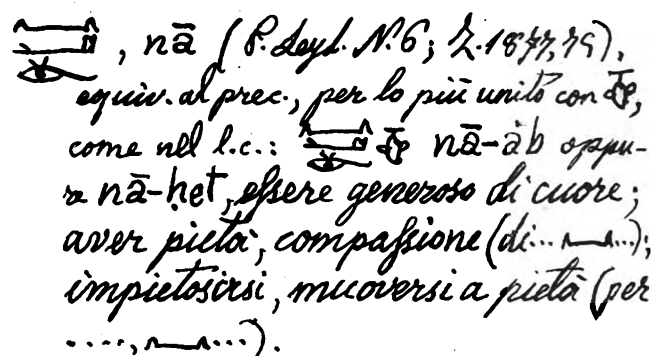 , nā (P. Leyd. N. 6; Z. 1877, 75),
equiv. al prec., per lo più unito con 𓄣,
come nel l.c.: nā-àb oppu-
re nā-ḥet, essere generoso di cuore;
aver pietà, compassione (di... 𓈖...);
impietosirsi, muoversi a pietà (per
...., 𓈖...).